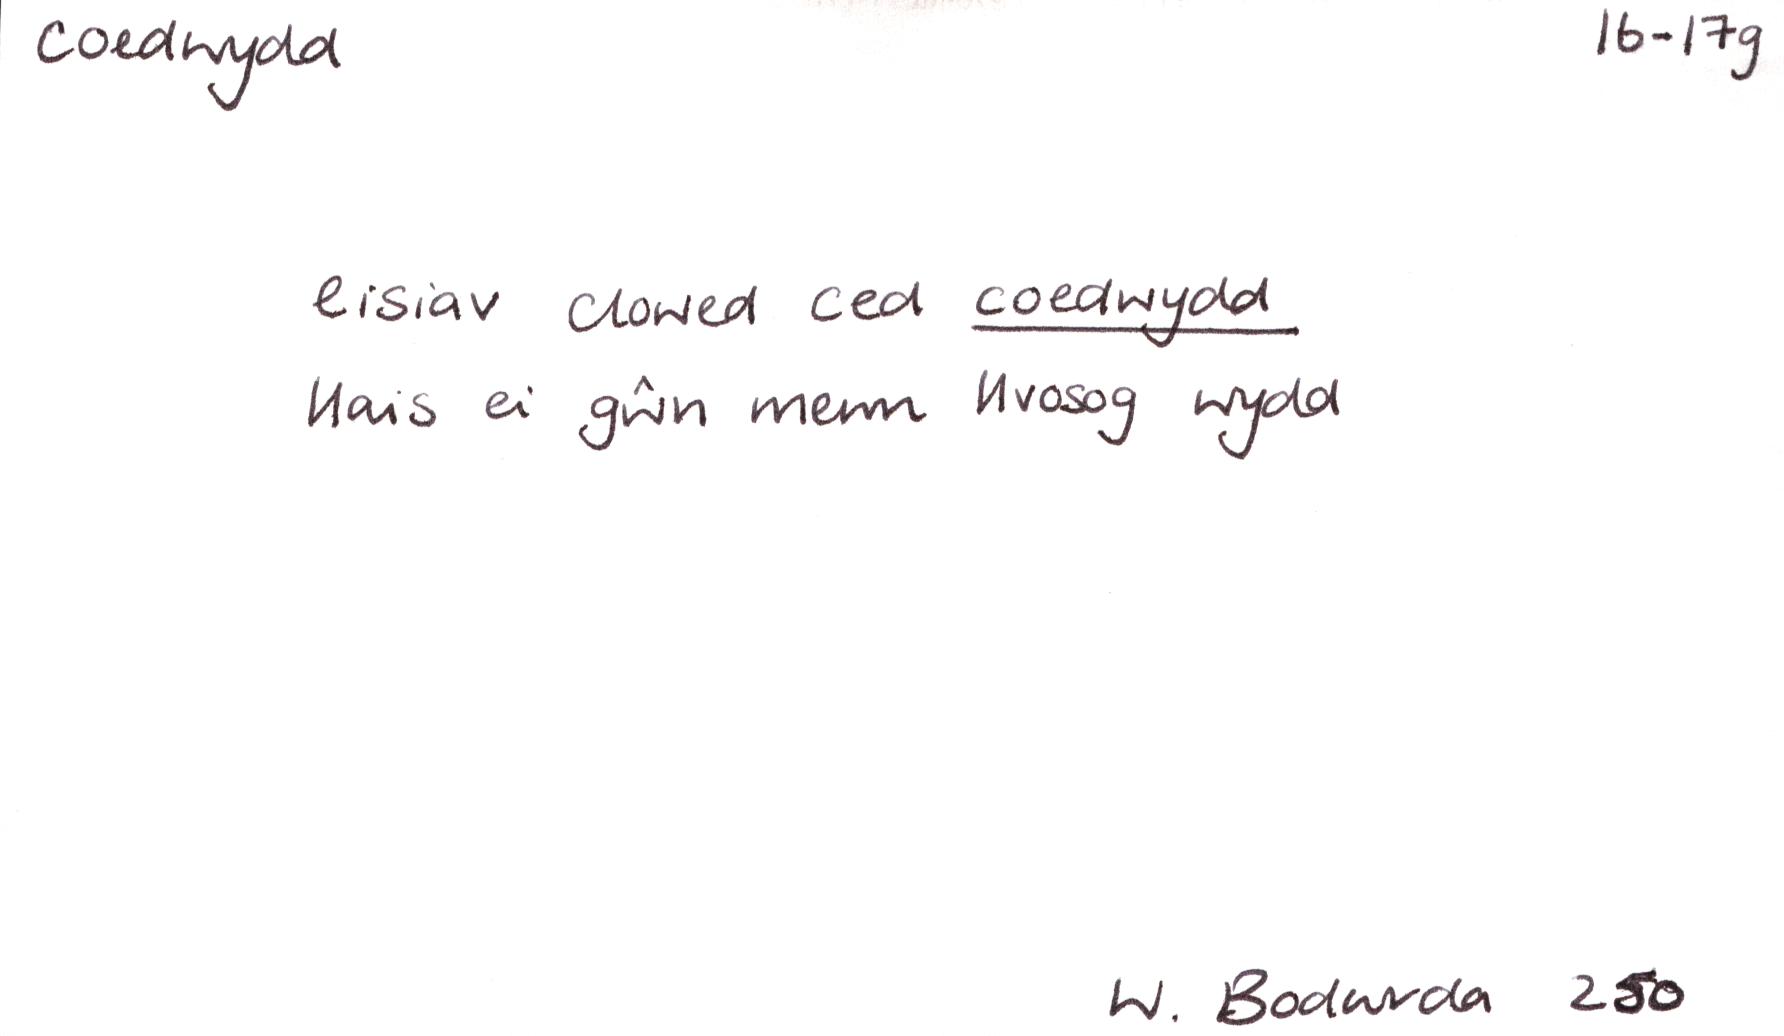 coedwydd 16-17g
eisiav clowed ced coedwydd
llais ei gŵn menn llvosog wydd
W. Bodwrda 250